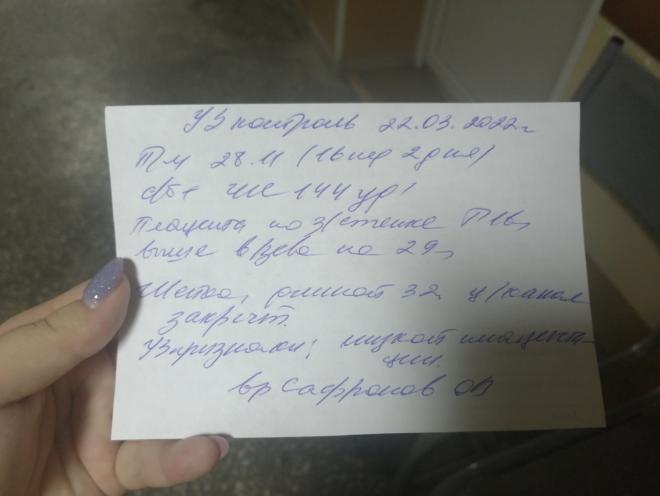 УЗ контроль 22.03.2022г
Тм 28.11 (16нед 2дня)
сб+ ЧСС 144 уд/
Плацента по з/стенке
выше в/зева на 29
Шейка, длиной 32, ц/канал
закрыт.
УЗпризнаки: низкой плацент-
ции.
вр Сафронов ОВ